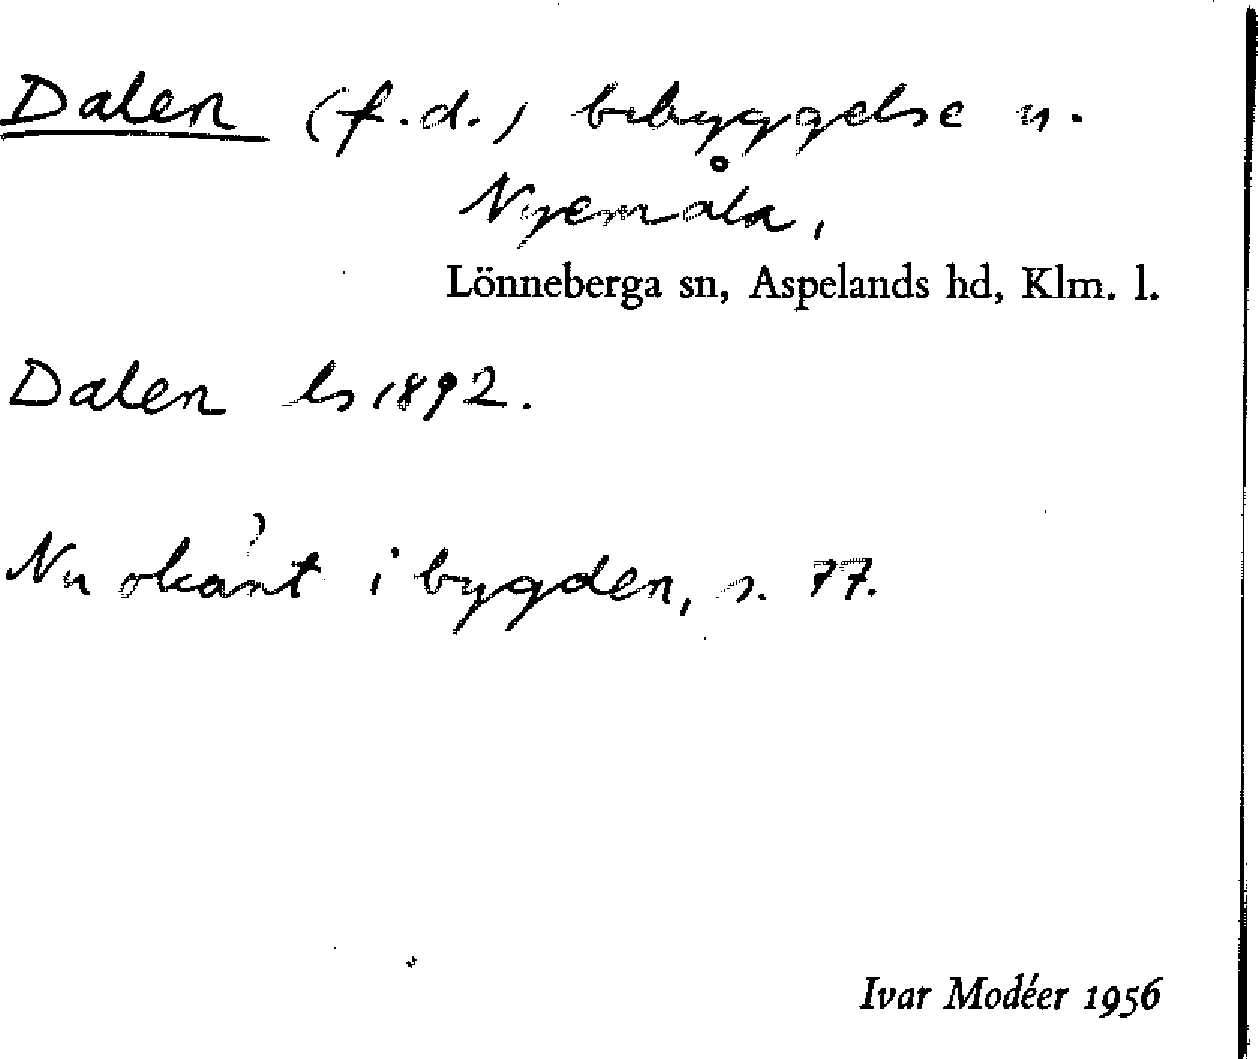 Dalen (f.d.) bebyggelse u.
Nyemåla,
Lönneberga sn, Aspelands hd, Klm. l.
Dalen ls 1892.
Nu okänt i bygden, s. 77.
Ivar Modéer 1956